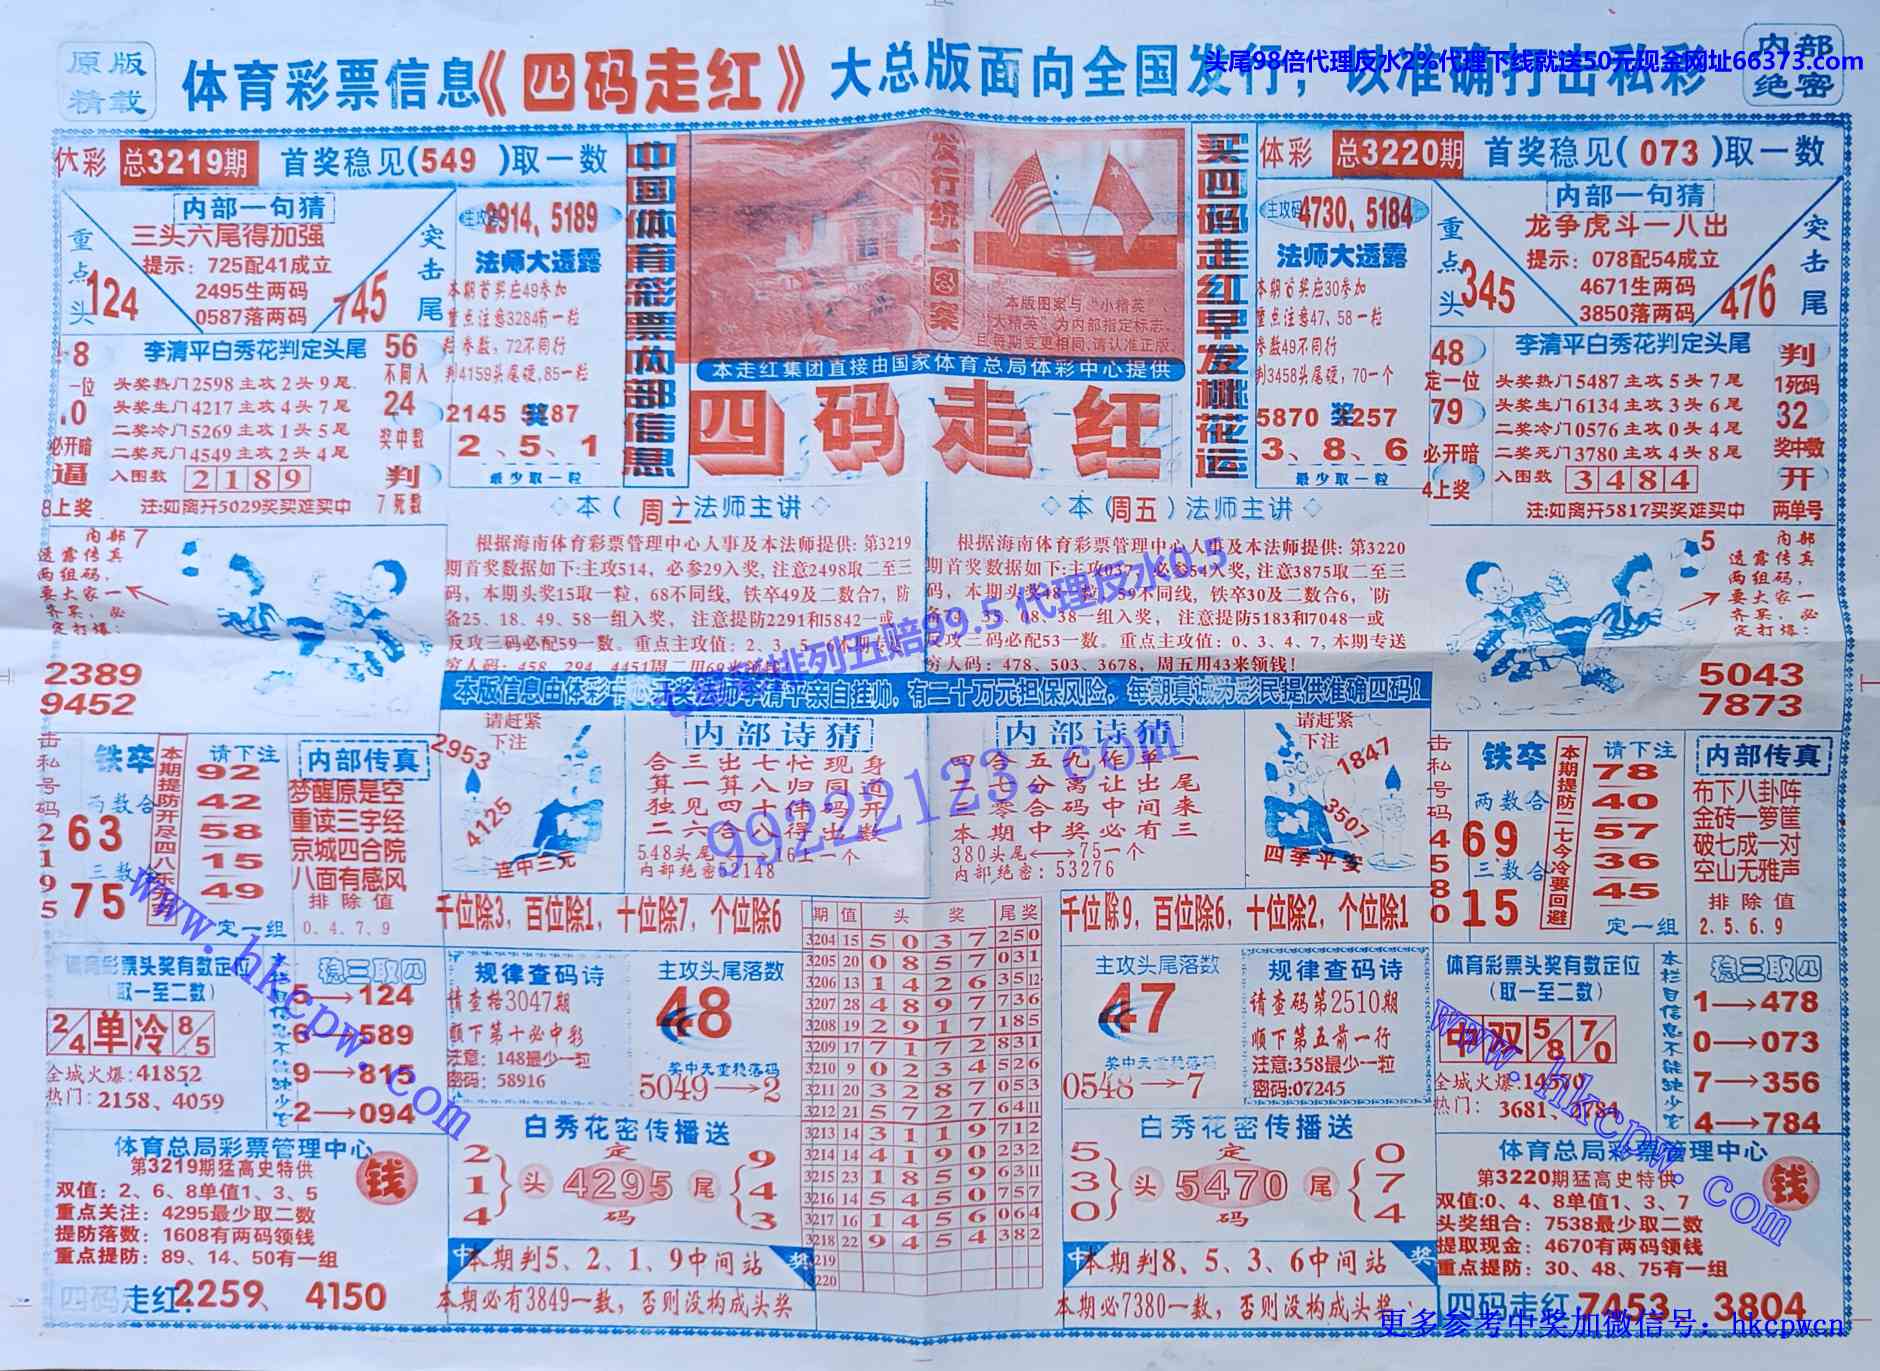 头尾98倍代理反水2%代理下线就送50元现金网址66373.com
原版
精载
体育彩票信息《四码走红》大总版面向全国发行，以准确打击私彩
内部
绝密
体彩 总3219期 首奖稳见(549 )取一数
内部一句猜
三头六尾得加强
提示：725配41成立
2495生两码
0587落两码
重点头
124
突击尾
745
主攻码2914、5189
法师大透露
本期首奖应49参加
重点注意3284有一粒
参数，72不同行
判4159头尾硬,85一粒
2145 奖 87
2、5、1
最少取一粒
李清平白秀花判定头尾
头奖热门2598主攻2头9尾
头奖生门4217主攻4头7尾
二奖冷门5269主攻1头5尾
二奖死门4549主攻2头4尾
入围数 2189
注:如离开5029奖买难买中
一位
必开暗
逼
8上奖
56
不同人
24
奖中数
判
7死数
中国体育彩票内部信息
发行统一图案
本版图案与“小精英”、
“大精英”为内部指定标志,
且每期变更相同,请认准正版.
本走红集团直接由国家体育总局体彩中心提供
四码走红
买四码走红早发桃花运
体彩 总3220期 首奖稳见(073)取一数
主攻码4730、5184
法师大透露
本期首奖应30参加
重点注意47、58一粒
参数49不同行
判3458头尾硬,70一个
5870 奖 257
3、8、6
最少取一粒
内部一句猜
龙争虎斗一八出
提示：078配54成立
4671生两码
3850落两码
重点头
345
突击尾
476
48
定一位
79
必开暗
4上奖
李清平白秀花判定头尾
头奖热门5487主攻5头7尾
头奖生门6134主攻3头6尾
二奖冷门0576主攻0头4尾
二奖死门3780主攻4头8尾
入围数 3484
注:如离开5817买奖难买中
判
1死码
32
奖中数
开
两单号
内部 7
透露传真
两组码，
要大家一
齐买，必
定打爆：
2389
9452
本(周二)法师主讲
根据海南体育彩票管理中心人事及本法师提供：第3219
期首奖数据如下:主攻514，必参29入奖,注意2498取二至三
码，本期头奖15取一粒，68不同线，铁卒49及二数合7，防
备25、18、49、58一组入奖， 注意提防2291和5842一或
反攻三码必配59一数。重点主攻值：2、3、5、6本期专送
穷人码：458、294、4451周二用69米领钱！
本(周五)法师主讲
根据海南体育彩票管理中心人事及本法师提供：第3220
期首奖数据如下:主攻037，必参54入奖,注意3875取二至三
码，本期头奖48一粒，59不同线，铁卒30及二数合6，防
备0、35、08、38一组入奖， 注意提防5183和7048一或
反攻三码必配53一数。重点主攻值：0、3、4、7,本期专送
穷人码：478、503、3678，周五用43米领钱！
5 内部
透露传真
两组码，
要大家一
齐买，必
定打爆：
5043
7873
排列五赔99.5 代理反水0.5
99222123.com
本版信息由体彩中心开奖法师李清平亲自挂帅，有二十万元担保风险，每期真诚为彩民提供准确四码！
击私号码2195
铁卒
两数合
63
三数合
75
请下注
92
42
58
15
49
定一组
内部传真
梦醒原是空
重读三字经
京城四合院
八面有感风
排除值
0.4.7.9
请赶紧
下注
2953
4125
连中三元
内部诗猜
合三出七忙现身
算一算八归同道
独见四十伴码开
二六合八得出数
548头尾⟷76上一个
内部绝密:52148
内部诗猜
四合五九作单一
一七分离让出尾
二零合码中间来
本期中奖必有三
380头尾⟷75一个
内部绝密：53276
请赶紧
下注
1847
3507
四季平安
击私号码4580
铁卒
两数合
69
三数合
15
本期提防二七今冷要回避
请下注
78
40
57
36
45
定一组
内部传真
布下八卦阵
金砖一箩筐
破七成一对
空山无雅声
排除值
2.5.6.9
千位除3，百位除1，十位除7，个位除6
千位除9，百位除6，十位除2，个位除1
体育彩票头奖有数定位
(取一至二数)
2/4 单 冷 8/5
全城火爆:41852
热门:2158、4059
稳三取四
5→124
6→589
9→815
2→094
规律查码诗
请查格3047期
顺下第十必中彩
注意：148最少一粒
密码：58916
主攻头尾落数
48
奖中天重稳落码
5049→2
期 值 头奖 尾奖
3204 15 5037 250
3205 20 0857 031
3206 13 1426 3512
3207 28 4897 736
3208 19 2917 185
3209 17 7172 831
3210 9 0234 526
3211 20 3287 053
3212 21 5727 6411
3213 14 3119 712
3214 14 4190 232
3215 23 1859 6311
3216 14 5450 757
3217 16 1456 064
3218 22 9454 382
3219
3220
主攻头尾落数
47
奖中天重稳落码
0548→7
规律查码诗
请查码第2510期
顺下第五前一行
注意:358最少一粒
密码:07245
体育彩票头奖有数定位
(取一至二数)
中 双 5/8 7/0
全城火爆:14570
热门： 3681、2784
本栏目信息不能缺少它
稳三取四
1→478
0→073
7→356
4→784
体育总局彩票管理中心
第3219期猛高史特供
钱
双值：2、6、8单值1、3、5
重点关注：4295最少取二数
提防落数：1608有两码领钱
重点提防：89、14、50有一组
四码走红:2259、4150
白秀花密传播送
214 头 定4295码 尾 943
本期判5、2、1、9中间站
本期必有3849一数，否则没构成头奖
白秀花密传播送
530 头 定5470码 尾 074
本期判8、5、3、6中间站
本期必7380一数，否则没构成头奖
体育总局彩票管理中心
第3220期猛高史特供
钱
双值:0、4、8单值1、3、7
头奖组合：7538最少取二数
提取现金：4670有两码领钱
重点提防：30、48、75有一组
四码走红7453、3804
www.hkcpw.com
www.hkcpw.com
更多参考中奖加微信号：hkcpwcn